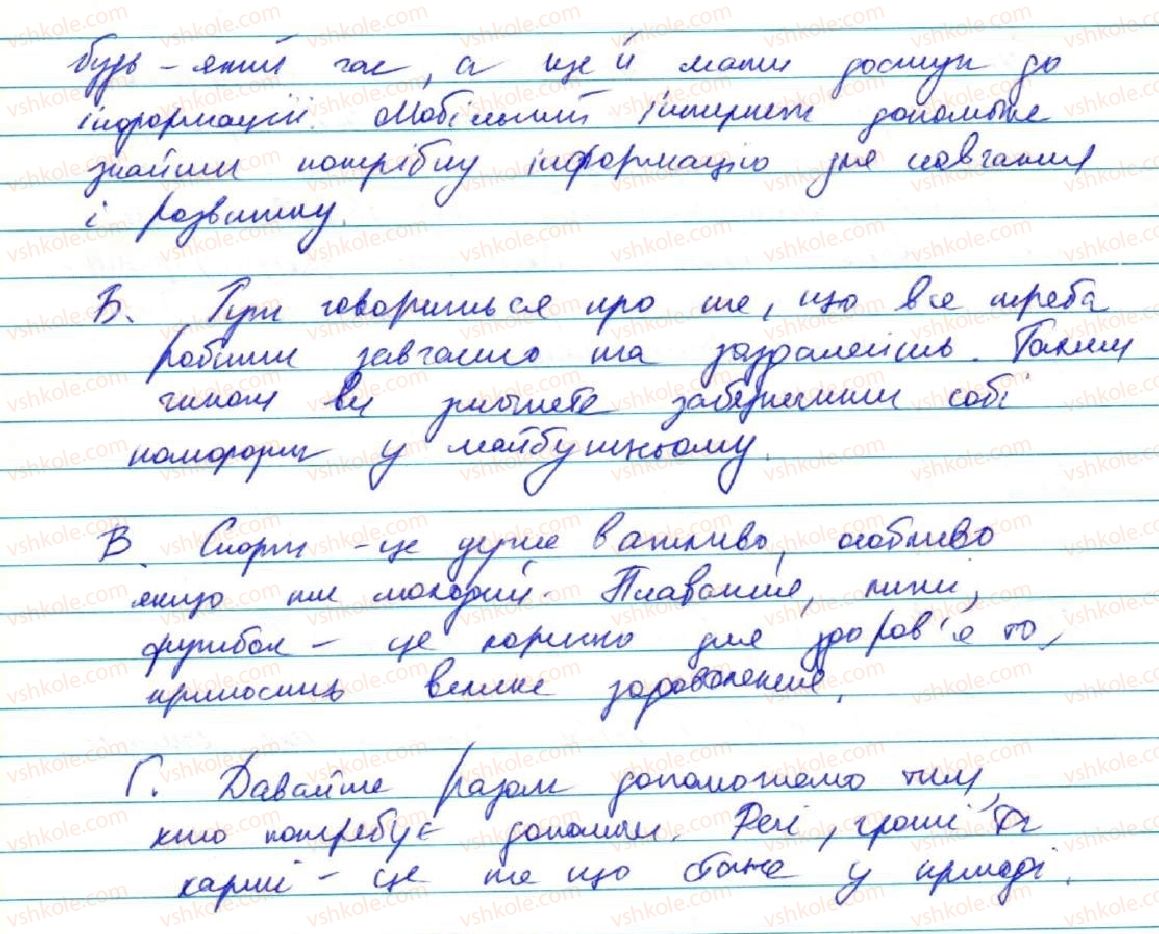 будь-який час, а ще й мати доступ до
інформації. Мобільний інтернет допоможе
знайти потрібну інформацію для навчання
і розвитку.
Б. Тут говориться про те, що все треба
робити завчасно та заздалегідь. Таким
чином ви зможете забезпечити собі
комфорт у майбутньому.
В. Спорт - це дуже важливо, особливо
якщо ти молодий. Плавання, лижі,
футбол - це корисно для здоров'я та
приносить велике задоволення.
Г. Давайте разом допоможемо тим,
хто потребує допомоги. Речі, гроші та
харчі - це те що стане у пригоді.